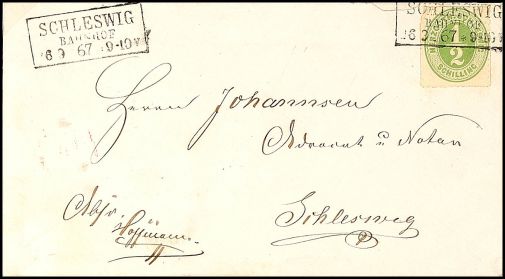 SCHLESWIG
BAHNHOF
26 9 67 9-10V
SCHLESWIG
BAHNHOF
26 9 67 9-10V
1/2
SCHILLING
Herrn Johannsen
Advocat u Notar
Schleswig
Hoffmann